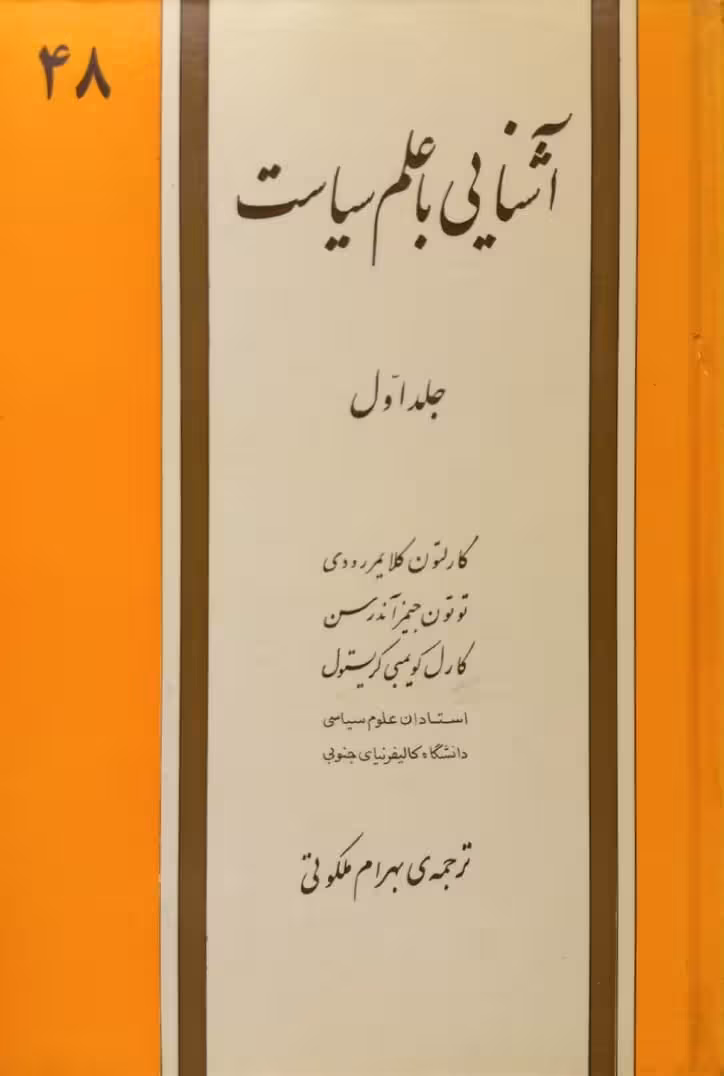 ۴۸
آشنایی با علم سیاست
جلد اوّل
کارلتون کلایمر رودی
توتون جیمز آندرسن
کارل کویمبی کریستول
استادان علوم سیاسی
دانشگاه کالیفرنیای جنوبی
ترجمه‌ی بهرام ملکوتی